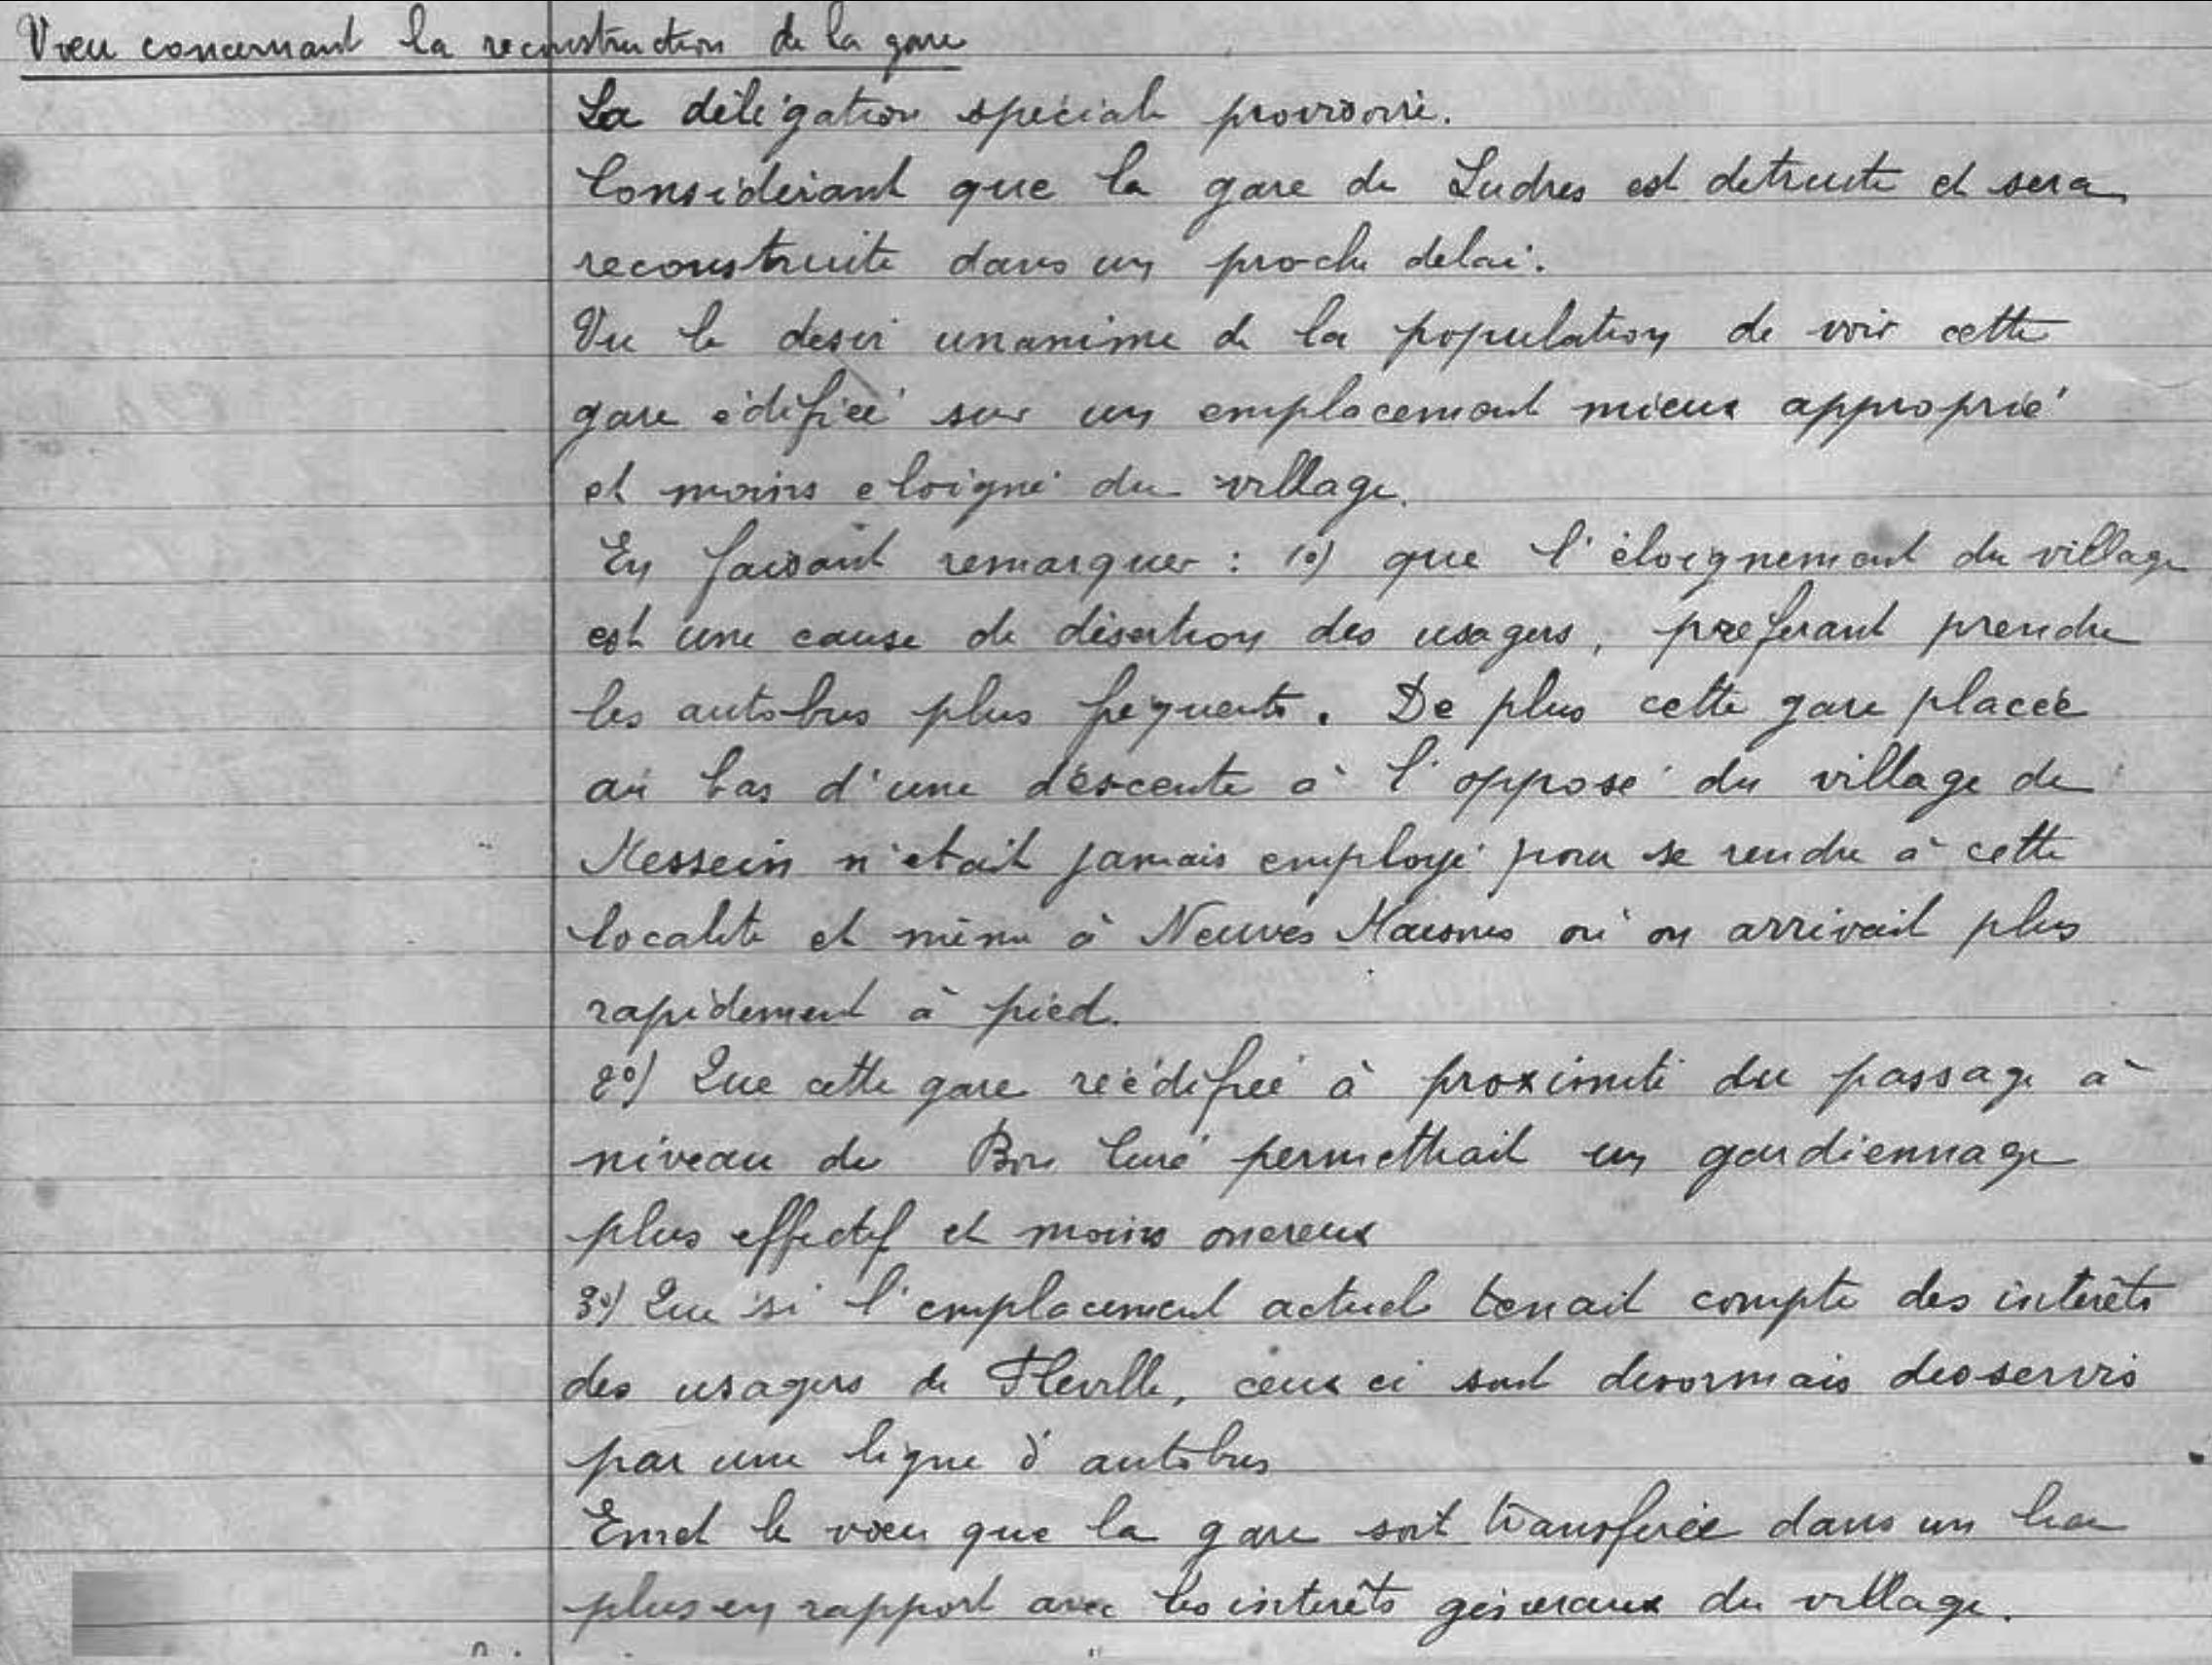 Vœu concernant la reconstruction de la gare
La délégation spéciale provisoire.
Considérant que la gare de Ludres est detruite et sera
reconstruite dans un proche delai.
Vu le desir unanime de la population de voir cette
gare édifiée sur un emplacement mieux approprié
et moins eloigné du village.
En faisant remarquer : 1º) que l'éloignement du village
est une cause de désertion des usagers, preferant prendre
les autobus plus fréquents. De plus cette gare placée
au bas d'une descente à l'opposé du village de
Messein n'etait jamais employé pour se rendre à cette
localité et même à Neuves Maisons où on arrivait plus
rapidement à pied.
2º) Que cette gare réédifiée à proximité du passage à
niveau du Bon Curé permettrait un gardiennage
plus effectif et moins onereux
3º) Que si l'emplacement actuel tenait compte des interêts
des usagers de Fleville, ceux ci sont desormais desservis
par une ligne d'autobus
Emet le vœu que la gare soit transferée dans un lieu
plus en rapport avec les interêts géneraux du village.